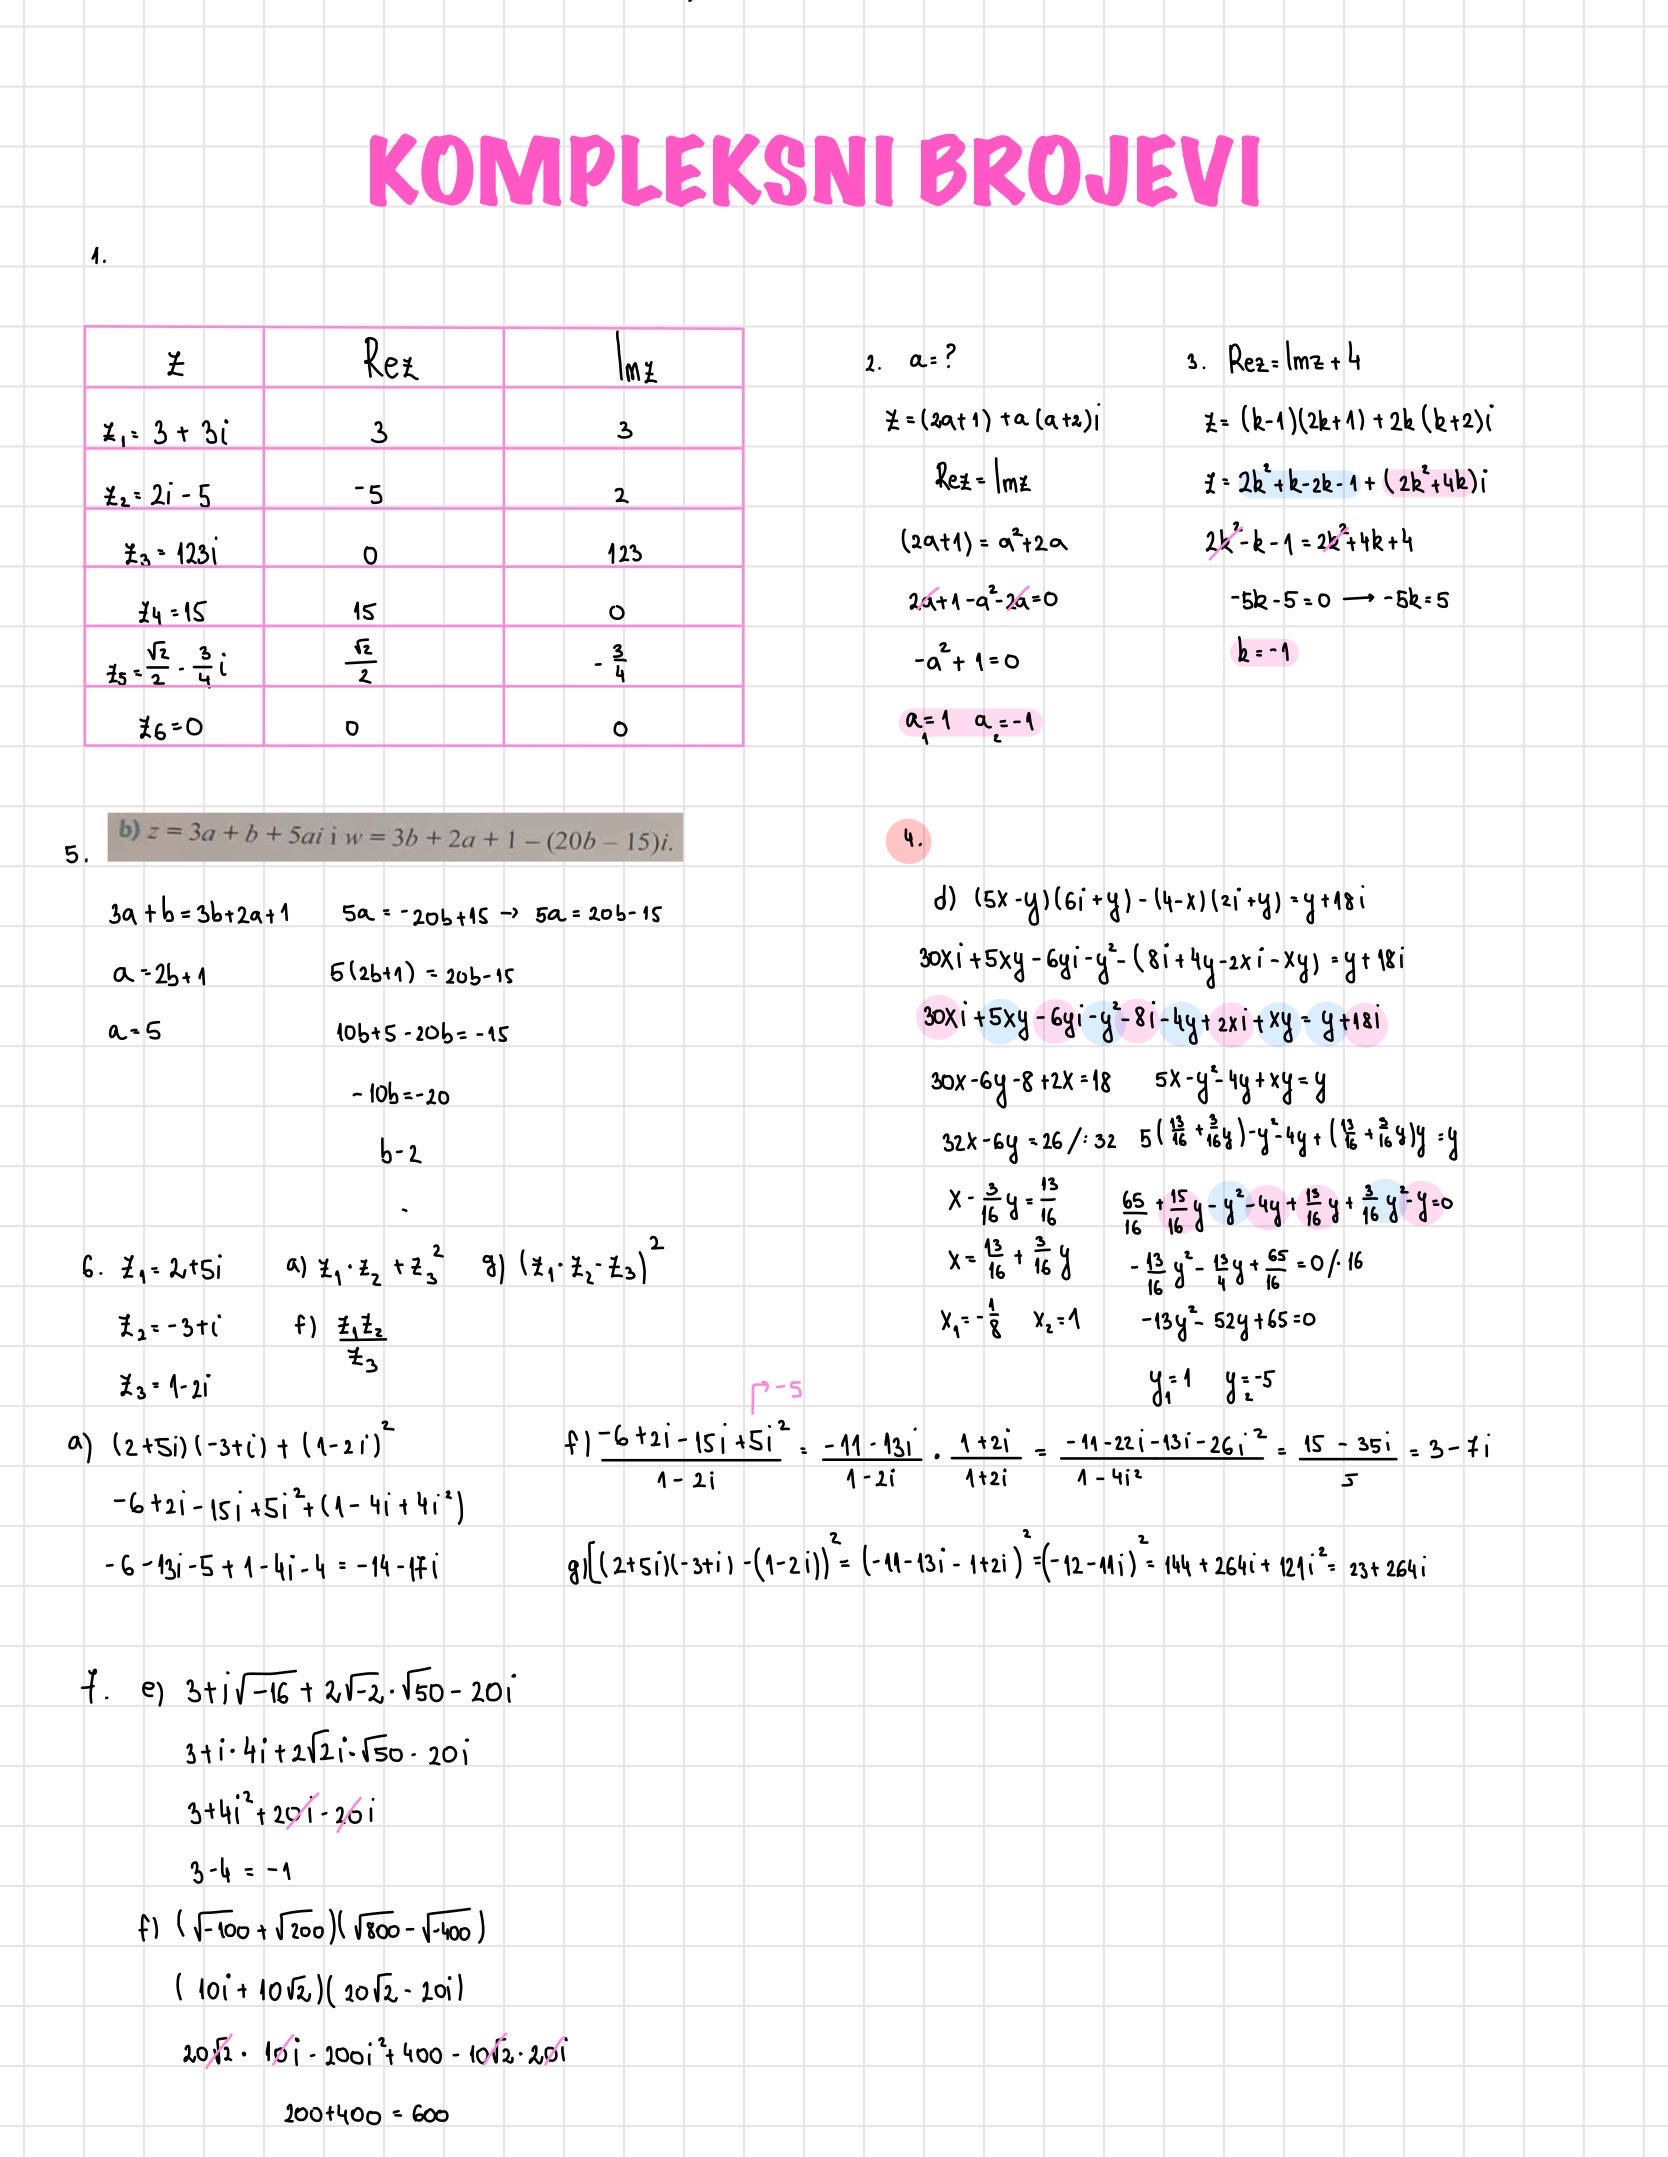 KOMPLEKSNI BROJEVI
1.
z Rez Imz
z₁ = 3 + 3i 3 3
z₂ = 2i - 5 -5 2
z₃ = 123i 0 123
z₄ = 15 15 0
z₅ = √2/2 - 3/4 i √2/2 -3/4
z₆ = 0 0 0
2. a = ?
z = (2a+1) + a(a+2)i
Rez = Imz
(2a+1) = a²+2a
2a+1-a²-2a=0
-a²+1=0
a₁=1 a₂=-1
3. Rez = Imz + 4
z = (k-1)(2k+1) + 2k(k+2)i
z = 2k²+k-2k-1 + (2k²+4k)i
2k²-k-1 = 2k²+4k+4
-5k-5=0 → -5k=5
k=-1
5. b) z = 3a + b + 5ai i w = 3b + 2a + 1 – (20b – 15)i.
3a+b=3b+2a+1 5a = -20b+15 → 5a = 20b-15
a = 2b+1 5(2b+1) = 20b-15
a = 5 10b+5-20b = -15
-10b = -20
b-2
4.
d) (5x-y)(6i+y) - (4-x)(2i+y) = y+18i
30xi+5xy-6yi-y²-(8i+4y-2xi-xy) = y+18i
30xi+5xy-6yi-y²-8i-4y+2xi+xy = y+18i
30x-6y-8+2x=18 5x-y²-4y+xy=y
32x-6y=26 /:32 5(13/16 + 3/16 y)-y²-4y+(13/16 + 3/16 y)y = y
x - 3/16 y = 13/16 65/16 + 15/16 y - y² - 4y + 13/16 y + 3/16 y² - y = 0
x = 13/16 + 3/16 y -13/16 y² - 13/4 y + 65/16 = 0 /·16
x₁ = -1/8 x₂ = 1 -13y² - 52y + 65 = 0
y₁ = 1 y₂ = -5
6. z₁ = 2+5i a) z₁·z₂ + z₃² g) (z₁·z₂-z₃)²
z₂ = -3+i f) z₁z₂/z₃
z₃ = 1-2i
a) (2+5i)(-3+i) + (1-2i)²
-6+2i-15i+5i²+(1-4i+4i²)
-6-13i-5+1-4i-4 = -14-17i
→ -5
f) (-6+2i-15i+5i²)/(1-2i) = (-11-13i)/(1-2i) · (1+2i)/(1+2i) = (-11-22i-13i-26i²)/(1-4i²) = (15-35i)/5 = 3-7i
g) [(2+5i)(-3+i) - (1-2i))² = (-11-13i-1+2i)² = (-12-11i)² = 144+264i+121i² = 23+264i
7. e) 3+i√-16 + 2√-2 · √50 - 20i
3+i·4i+2√2i·√50 - 20i
3+4i²+20i-20i
3-4 = -1
f) (√-100 + √200)(√800 - √-400)
(10i + 10√2)(20√2 - 20i)
20√2 · 10i - 200i² + 400 - 10√2 · 20i
200+400 = 600